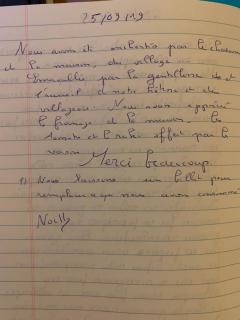 25/09/19
Nous avons été enchantés par le chateau
et la maison, du village
Emmaillé par la gentillesse de et
l'accueil a notre hôtesse et du
villageois. Nous avons apprécié
le fromage de la maison, les
tomates et le reste offert par le
voisin
Merci beaucoup.
Nous laissons un billet pour
remplacer ce que nous avons consommé